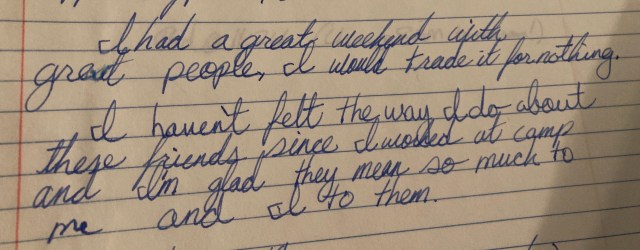 I had a great weekend with
great people, I would trade it for nothing.
I haven't felt the way I do about
these friends since I worked at camp
and I'm glad they mean so much to
me and I to them.